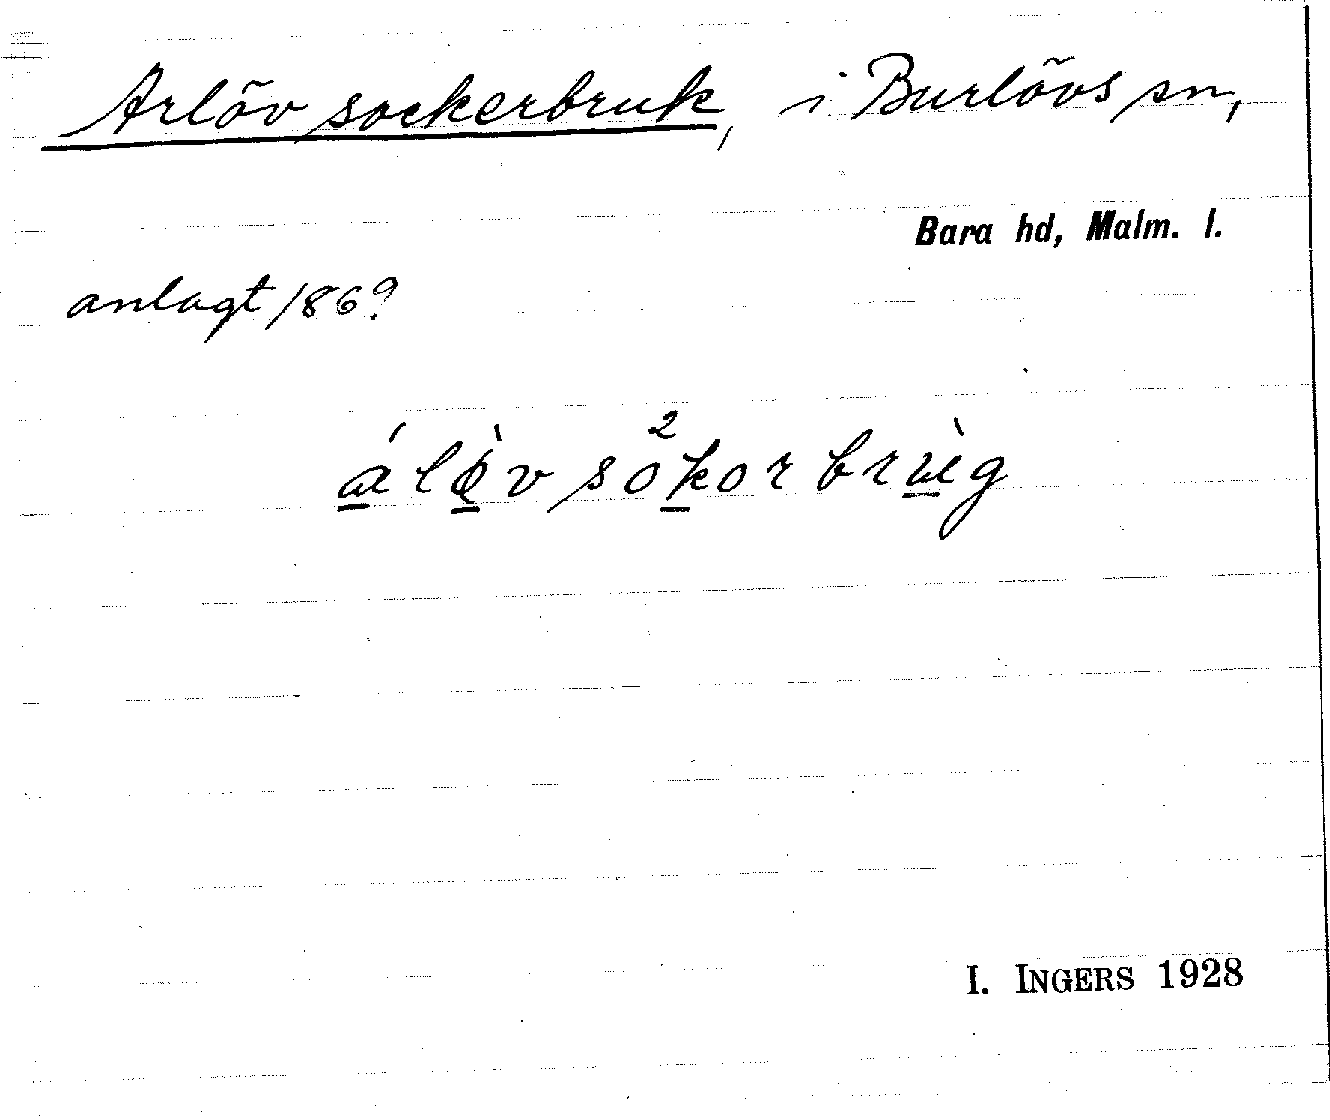 Arlöv sockerbruk, i Burlövs sn,
Bara hd, Malm. l.
anlagt 1869.
álø̀v so²korbrùg
I. INGERS 1928